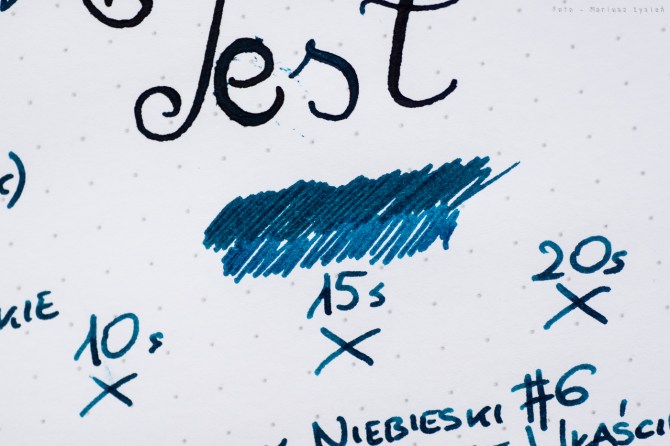 Foto - Mariusz Łysiak
Test
c)
10s
15s
20s
X
X
X
KIE
NIEBIESKI #6